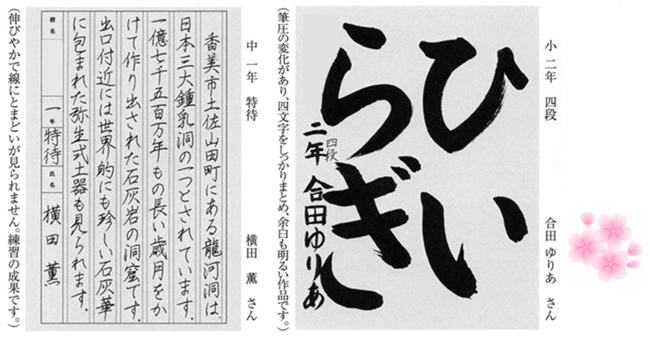 小二年 四段 合田 ゆりあ さん
ひい
らぎ
四段
二年 合田ゆりあ
(筆圧の変化があり、四文字をしっかりまとめ、余白も明るい作品です。)
中一年 特待 横田 薫 さん
香美市土佐山田町にある龍河洞は、
日本三大鍾乳洞の一つとされています。
一億七千五百万年もの長い歳月をか
けて作り出された石灰岩の洞窟です。
出口付近には世界的にも珍しい石灰華
に包まれた弥生式土器も見られます。
校名 一年 特待 氏名 横田 薫
(伸びやかで線にとまどいが見られません。練習の成果です。)